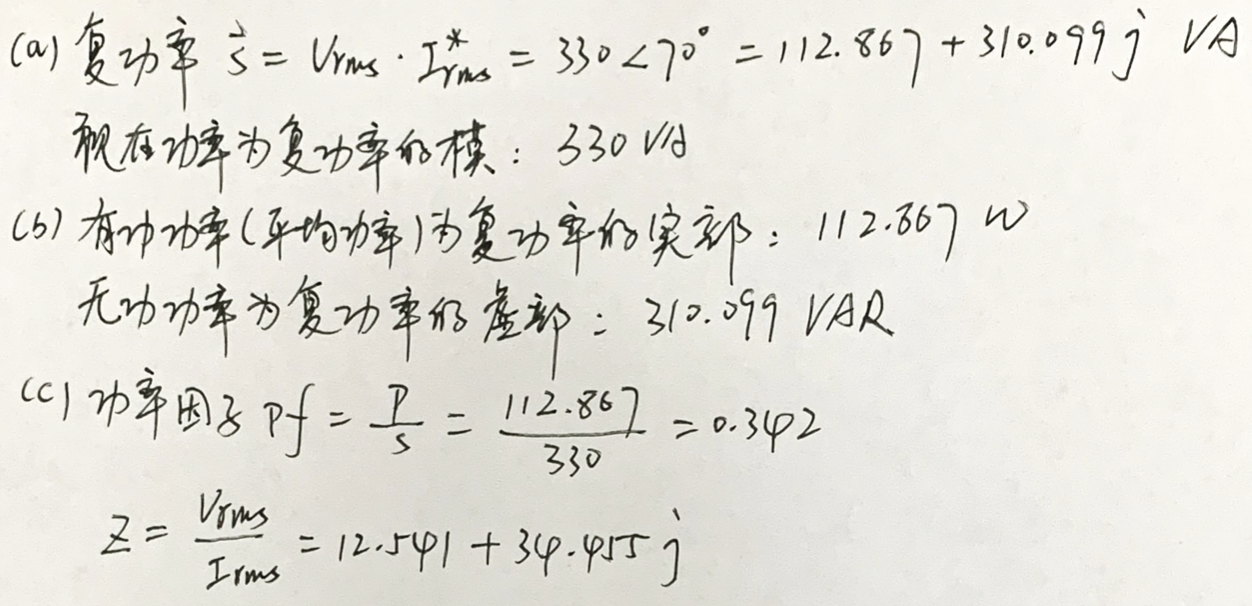 (a) 复功率 S⃗ = Vrms · I*rms = 330∠70° = 112.867 + 310.099j VA
视在功率为复功率的模: 330 VA
(b) 有功功率(平均功率)为复功率的实部: 112.867 W
无功功率为复功率的虚部: 310.099 VAR
(c) 功率因子 Pf = P/S = 112.867/330 = 0.342
Z = Vrms/Irms = 12.541 + 34.455j